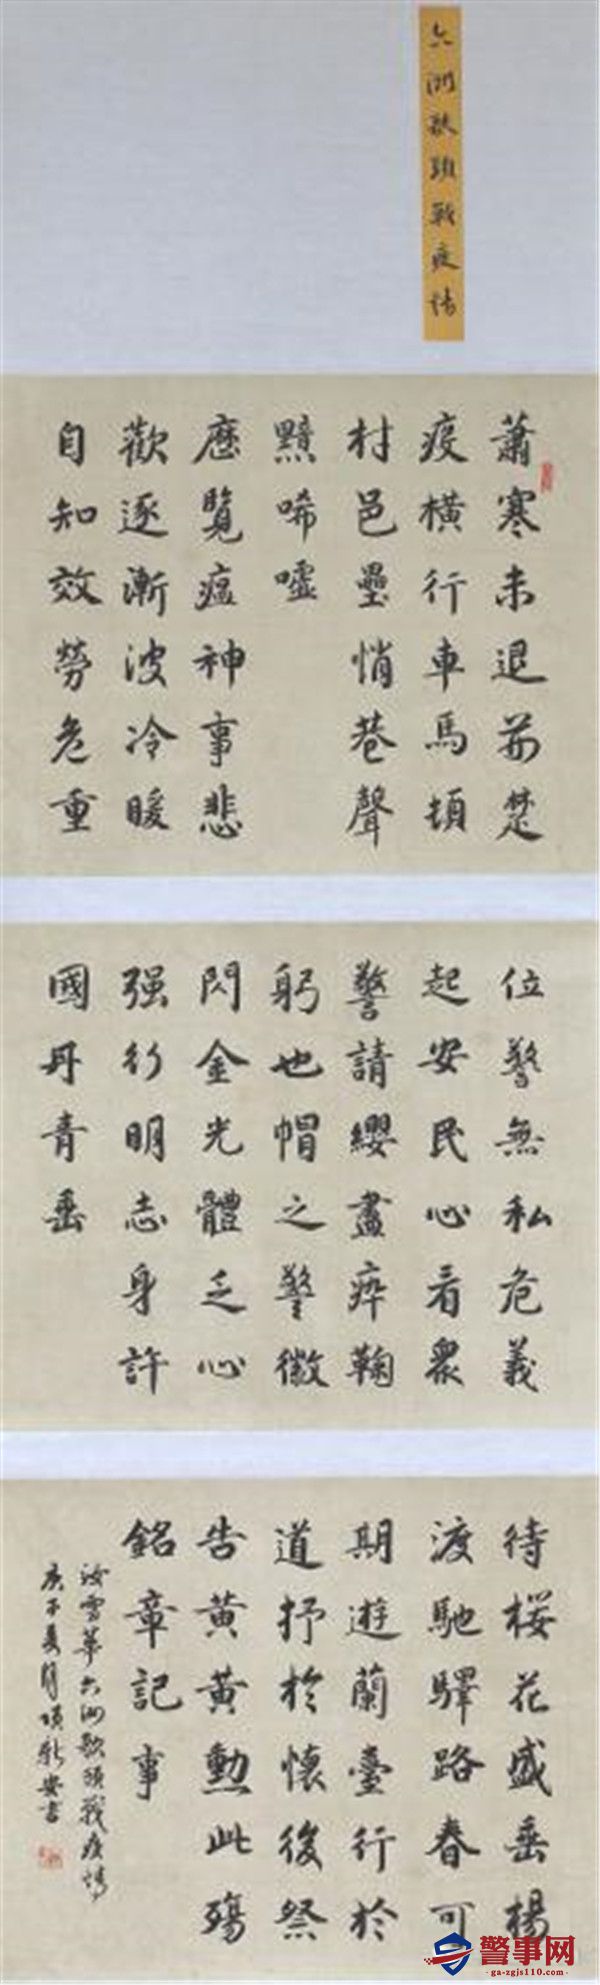 六洲歌頭戰疫情
蕭寒未退前楚
疫橫行車馬頓
村邑壘悄巷聲
黯唏噓
歷覽瘟神事悲
歡逐漸波冷暖
自知效勞危重
位警無私危義
起安民心看眾
警請纓盡瘁鞠
躬也帽之警徽
閃金光體乏心
强行明志身許
國丹青垂
待桜花盛垂楊
渡馳驛路春可
期遊蘭臺行於
道抒於懷後祭
告黃黃勲此殤
銘章記事
雪華六洲歌頭戰疫情
庚子夏月項新安書
警事网
ga-zgjs110.com